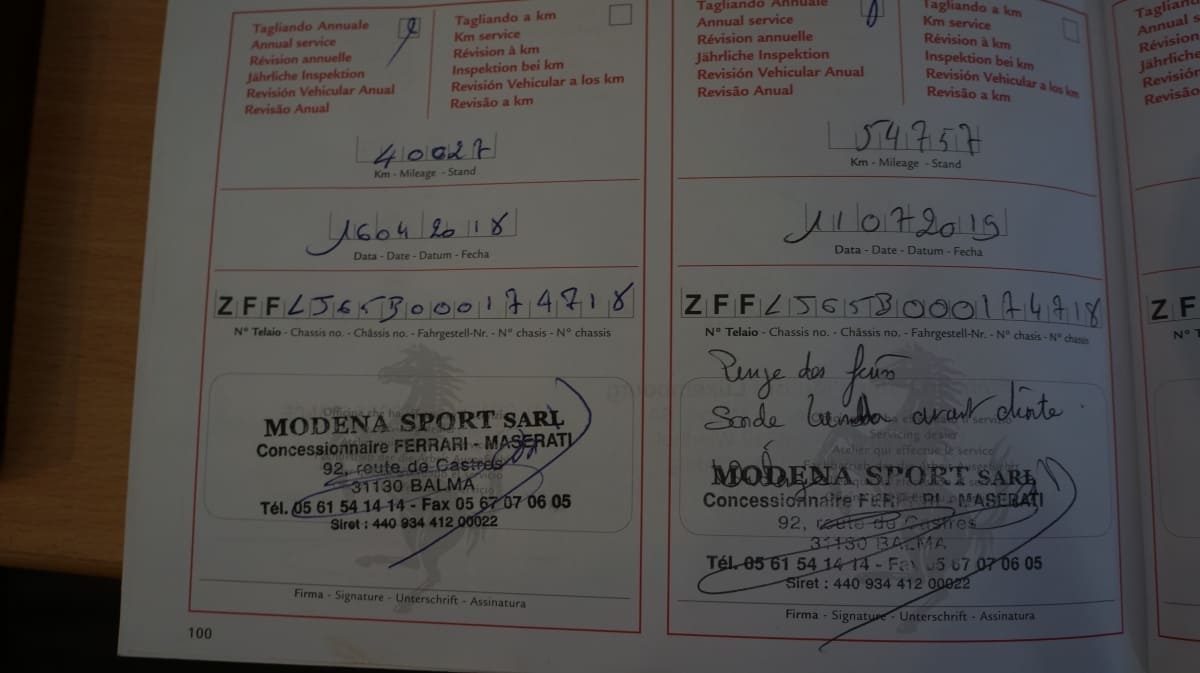 Tagliando Annuale
Annual service
Révision annuelle
Jährliche Inspektion
Revisión Vehicular Anual
Revisão Anual
Tagliando a km
Km service
Révision à km
Inspektion bei km
Revisión Vehicular a los km
Revisão a km
40027
Km - Mileage - Stand
16042018
Data - Date - Datum - Fecha
ZFFLJ65B000174718
N° Telaio - Chassis no. - Châssis no. - Fahrgestell-Nr. - N° chasis - N° chassis
MODENA SPORT SARL
Concessionnaire FERRARI - MASERATI
92, route de Castres
31130 BALMA
Tél. 05 61 54 14 14 - Fax 05 67 07 06 05
Siret : 440 934 412 00022
Firma - Signature - Unterschrift - Assinatura
100
Tagliando Annuale
Annual service
Révision annuelle
Jährliche Inspektion
Revisión Vehicular Anual
Revisão Anual
Tagliando a km
Km service
Révision à km
Inspektion bei km
Revisión Vehicular a los km
Revisão a km
54757
Km - Mileage - Stand
11072019
Data - Date - Datum - Fecha
ZFFLJ65B000174718
N° Telaio - Chassis no. - Châssis no. - Fahrgestell-Nr. - N° chasis - N° chassis
Purge des
Sonde avant
Servicing dealer
Atelier qui effectue le service
MODENA SPORT SARL
Concessionnaire FERRARI - MASERATI
92, route de Castres
31130 BALMA
Tél. 05 61 54 14 14 - Fax 05 67 07 06 05
Siret : 440 934 412 00022
Firma - Signature - Unterschrift - Assinatura
Annual s
Révision
Jährliche
Revisión
Revisão
ZF
N°